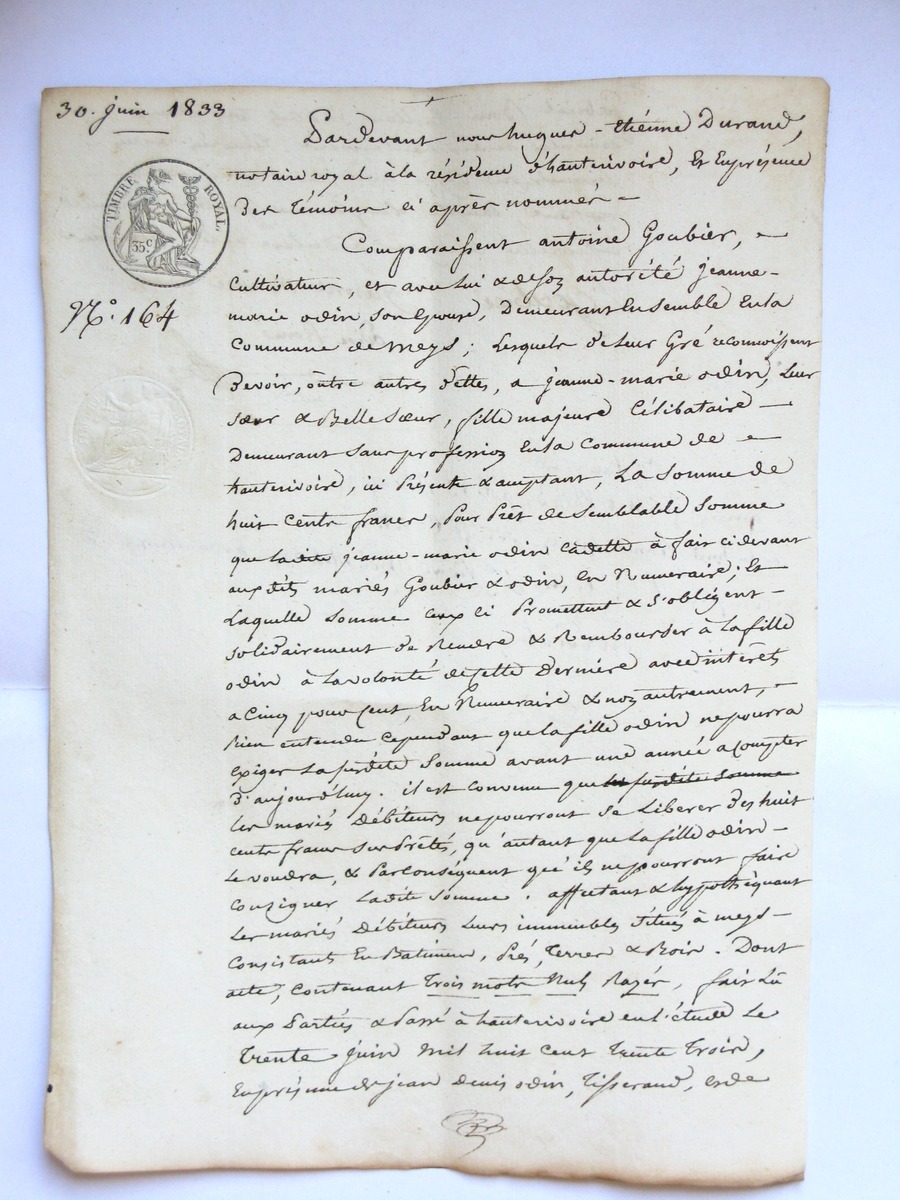 30. juin 1833
TIMBRE ROYAL.
35c
No. 164
Pardevant nous hugues-etiénne Durand,
notaire royal à la résidence d'hauterivoire, Et Enprésence
Des témoins ci après nommés -
Comparaissent antoine Goubier, -
Cultivateur, et avec lui & de son autorité jeanne-
marie odin, son Epouse, Demeurant Ensemble Enla
Commune de meys; Lesquels de leur Gré reconnoissent
Devoir, outre autres dettes, a jeanne-marie odin, leur
sœur & Belle sœur, fille majeure Célibataire -
Demeurant Sans profession Enla Commune de -
hauterivoire, ici Présente & acceptant, La Somme de
huit cents francs, Pour Prêt de Semblable Somme
que ladite jeanne-marie odin cadette à fait ci devant
auxdits mariés Goubier & odin, En Numeraire; Et
Laquelle Somme ceux ci Promettent & S'obligent -
Solidairement de Rendre & Rembourser à la fille
odin à la volonté de cette Derniere avec intérêts
a Cinq pour Cent, En Numeraire & non autrement, -
Bien entendu Cependant que la fille odin ne pourra
exiger La susdite Somme avant une année a compter
D'aujourd'huy. il est convenu que la susdite Somme
Les mariés Débiteurs ne pourront se Liberer Des huit
cents francs sus Prêtés, qu'autant que la fille odin -
Le voudra, & Parconséquent qu'ils ne pourront faire
Consigner Ladite Somme. affectant & hypothéquant
Les mariés Débiteurs Leurs immeubles Situés à meys -
Consistants En Batimens, Prés, Terres & Bois. Dont
acte, Contenant Trois mots Nuls Rayés, fait Lû
aux Parties & Passé à hauterivoire en l'étude Le
Trente juin Mil huit cent Trente Trois,
Enprésence de jean denis odin, Tisserand, &de